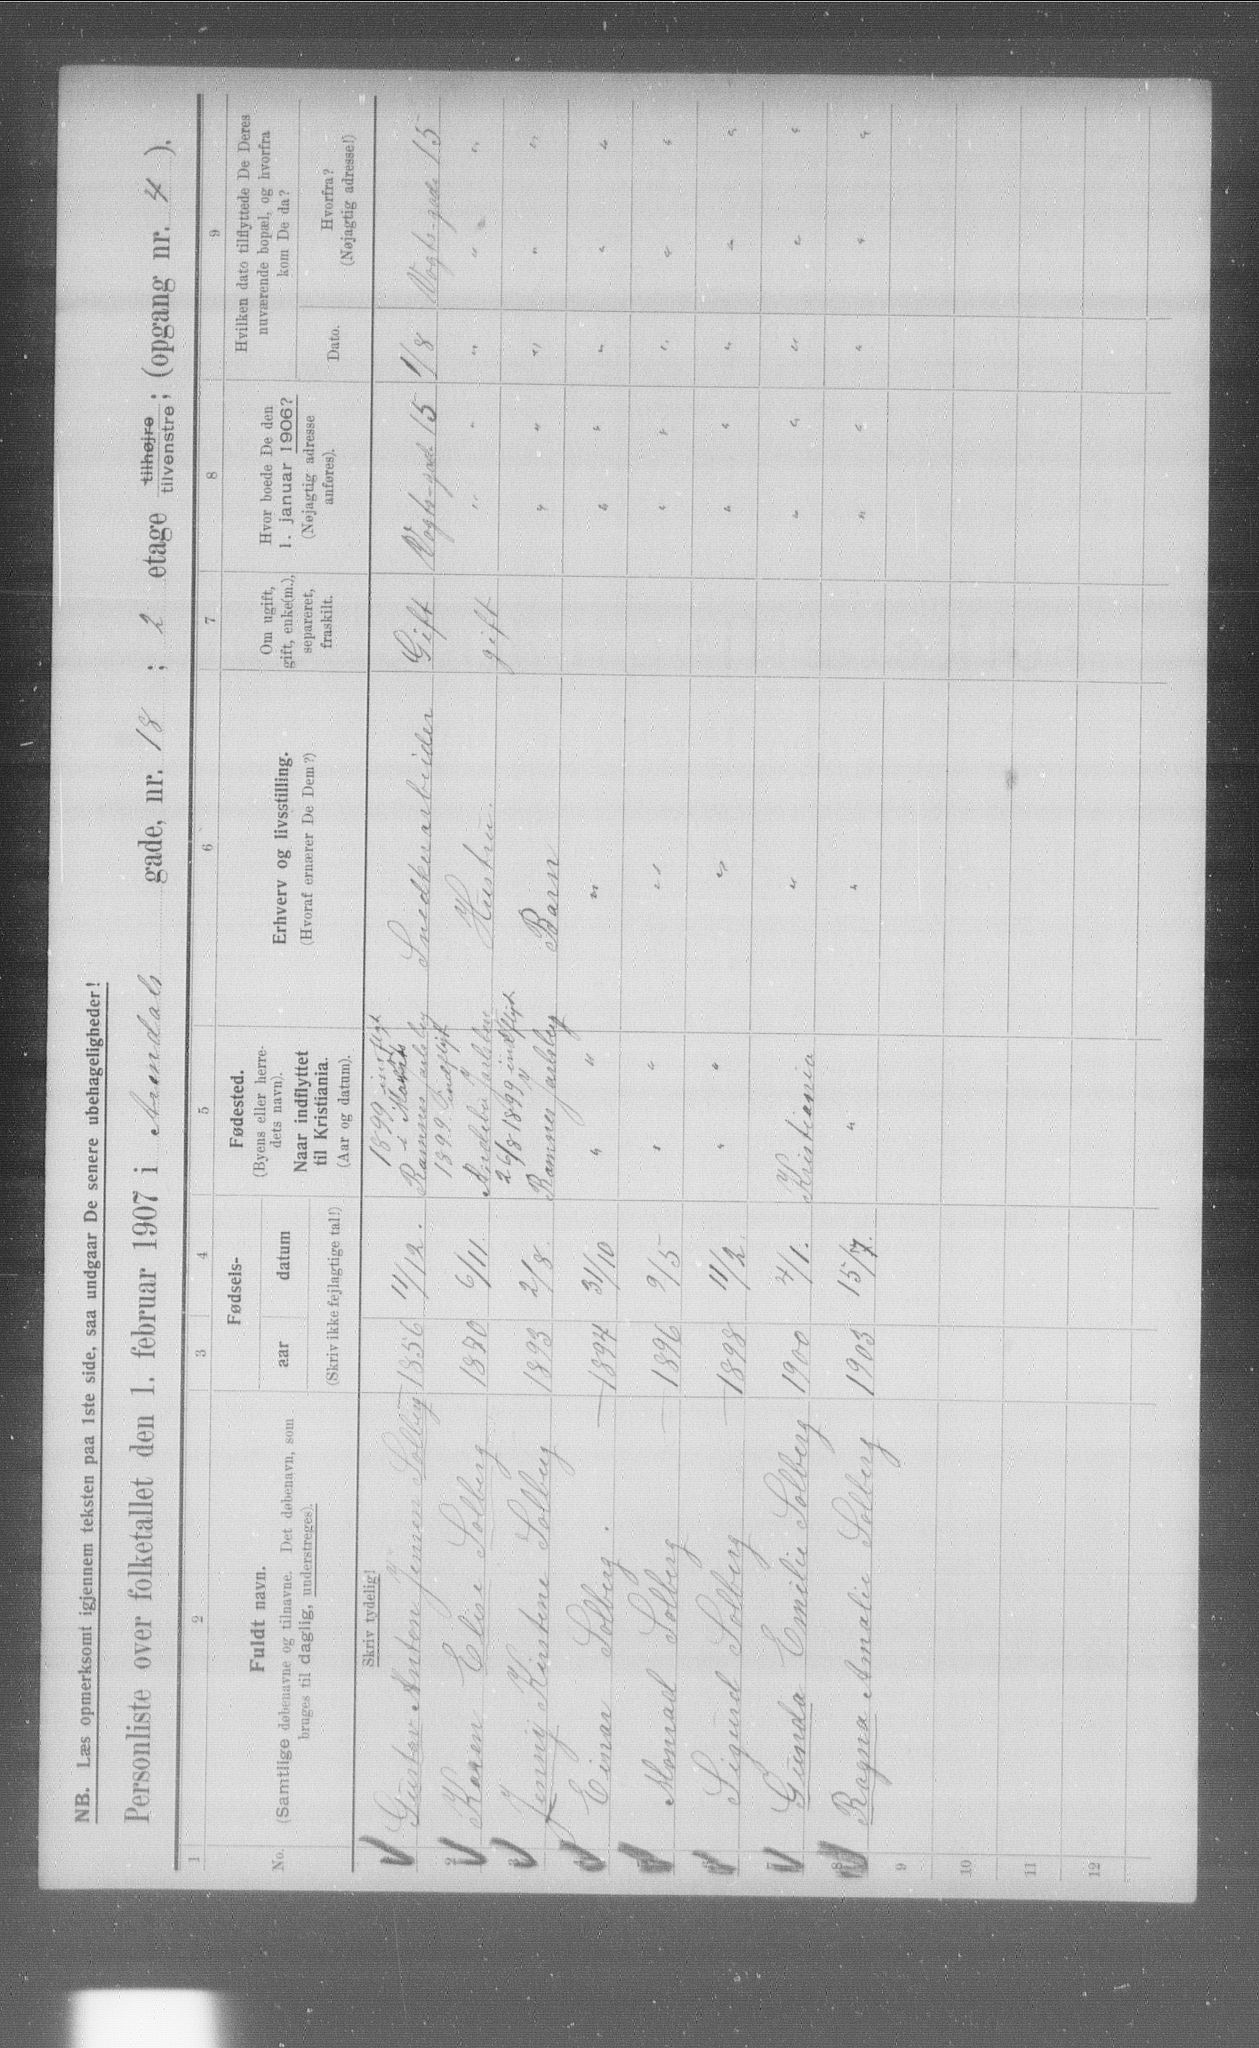 NB. Læs opmerksomt igjennem teksten paa 1ste side, saa undgaar De senere ubehageligheder!
Personliste over folketallet den 1. februar 1907 i Arendals gade, nr. 18 ; 2 etage tilhøjre tilvenstre ; (opgang nr. 4 ).
1 2 3 4 5 6 7 8 9
No.
Fuldt navn.
(Samtlige døbenavne og tilnavne. Det døbenavn, som
bruges til daglig, understreges).
Fødsels-
aar datum
(Skriv ikke fejlagtige tal!)
Fødested.
(Byens eller herre-
dets navn).
Naar indflyttet
til Kristiania.
(Aar og datum).
Erhverv og livsstilling.
(Hvoraf ernærer De Dem?)
Om ugift,
gift, enke(m.),
separeret,
fraskilt.
Hvor boede De den
1. januar 1906?
(Nøjagtig adresse
anføres).
Hvilken dato tilflyttede De Deres
nuværende bopæl, og hvorfra
kom De da?
Dato.
Hvorfra?
(Nøjagtig adresse!)
Skriv tydelig!
1899 indflyt
Gustav Anton Jensen Solberg 1856 11/12. Ramnes Jarlsberg Snedkerarbeider Gift Vogts-gade 15 1/8 Vogts-gade 15
1899 indflyt
2 Karen Elise Solberg 1870 6/11. Andebu Jarlsberg Hustru. gift " " " " "
26/8 1899 indflyt
3 Jenny Kirstine Solberg 1893 2/8. Ramnes Jarlsberg Barn " " " " "
4 Einar Solberg. 1894 31/10 " " " " " " " "
5 Monrad Solberg 1896 9/5 " " " " " " " "
6 Sigurd Solberg 1898 11/2 " " " " " " " "
7 Gunda Emilie Solberg 1900 4/1. Kristiania " " " " " "
8 Ragna Amalie Solberg 1903 15/7. " " " " " " "
9
10
11
12